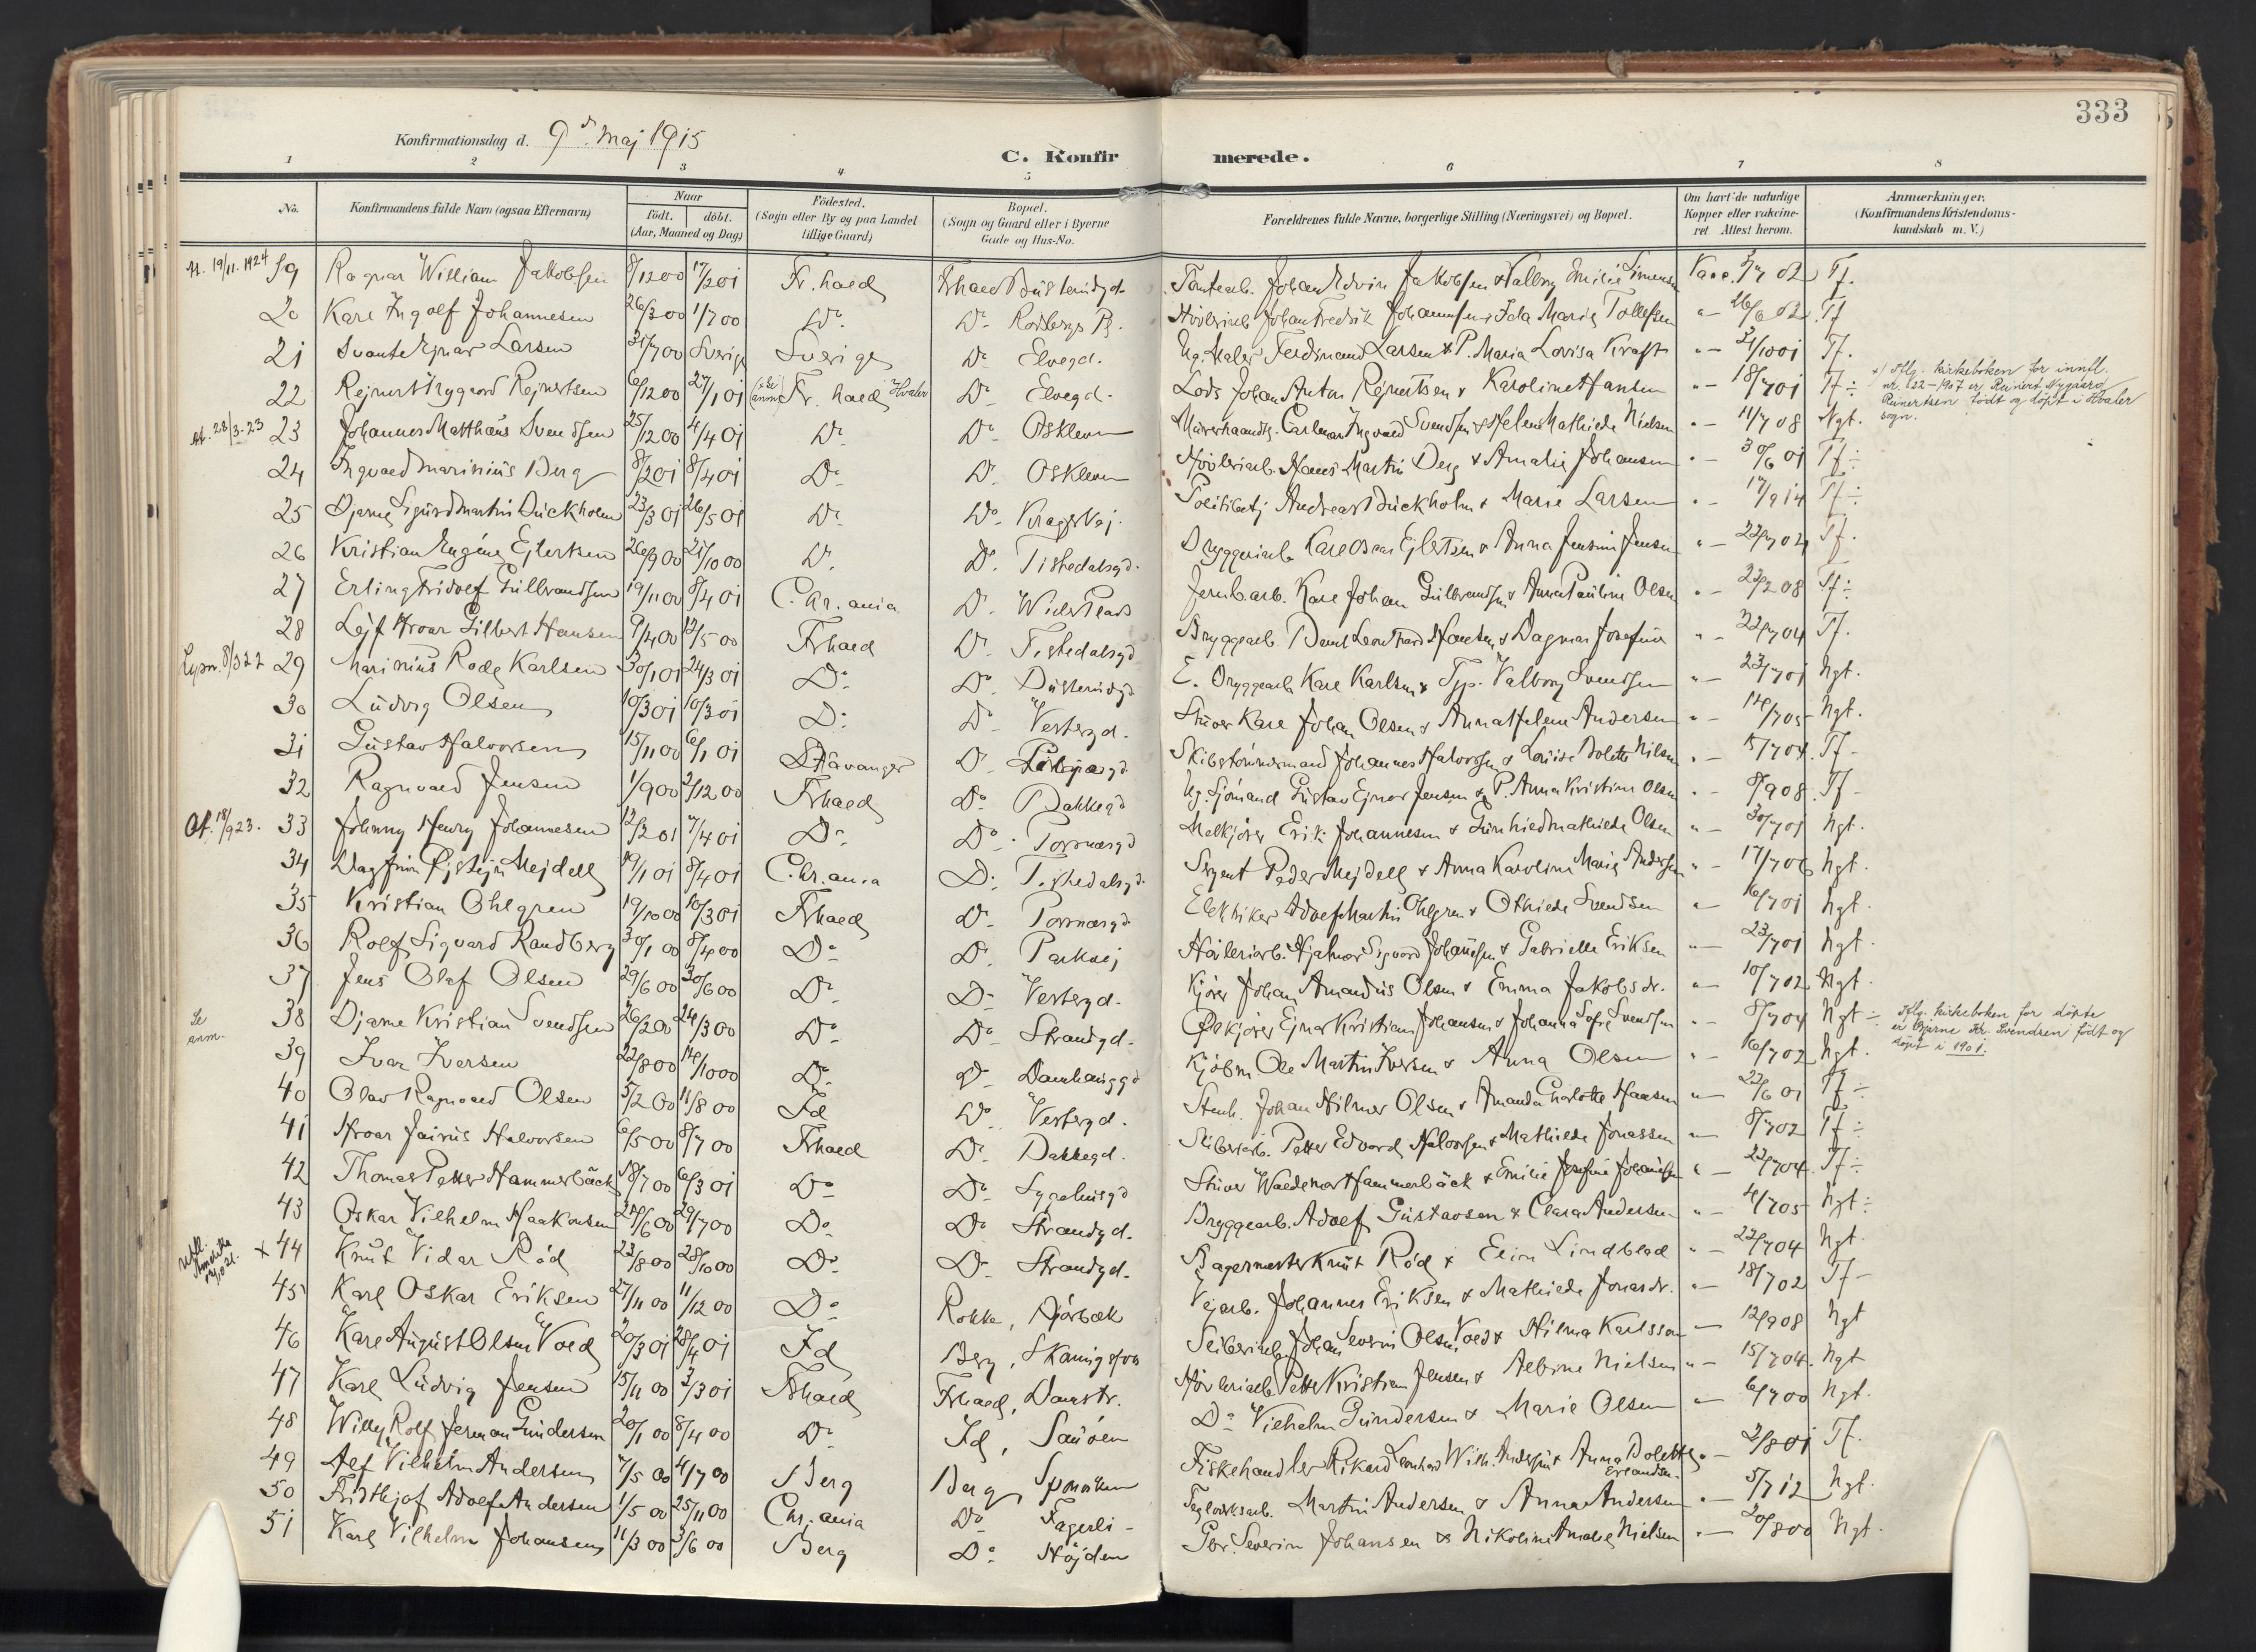 333
Konfirmationsdag d. 9de Maj 1915
C. Konfirmerede.
1 2 3 4 5 6 7 8
No. Konfirmandens fulde Navn (ogsaa Efternavn) Naar født. døbt. (Aar, Maaned og Dag) Fødested. (Sogn eller By og paa Landet tillige Gaard) Bopæl. (Sogn og Gaard eller i Byerne Gade og Hus-No. Forældrenes fulde Navne, borgerlige Stilling (Næringsvei) og Bopæl. Om havt de naturlige Kopper eller vakcineret Attest herom. Anmærkninger. (Konfirmandens Kristendomskundskab m. V.)
19/11.1924 19 Ragnar William Jakobsen 8/12 00 17/2 01 Fr.hald Johan Edvin Jakobsen & Valborg Emilie Simensen Vacc. Tf.
20 Karl Ingolf Johannesen 26/3 00 1/7 00 Do Do Johan Fredrik Johannesen & Ida Marie Tollefsen Tf
21 Svante Ejnar Larsen 31/7 00 Sverige Sverige Do Elvegd. Ug. Maler Ferdinand Larsen & P. Maria Lovisa Kraft 21/10 01 Tf.
22 Rejnert Nygaard Rejnertsen 6/12 00 27/1 01 (x Se anm) Fr.hald Hvaler Do Elvegd. Lods Johan Anton Rejnertsen & Karoline Hansen 18/7 01 Tf ÷ x/ Iflg. kirkeboken for innfl. nr. 22-1907 er Reinert Nygaard Reinertsen født og døpt i Hvaler sogn.
28/3-23 23 Johannes Matthæus Svendsen 25/12 00 4/4 01 Do Do Oskleven Ingvald Svendsen & Helene Mathilde Nielsen 11/7 08 Ngt.
24 Ingvald Marinius Berg 8/2 01 8/4 01 Do Do Oskleven Høvleriarb. Hans Martin Berg & Amalie Johansen 30/6 01 Tf ÷
25 Bjarne Sigurd Martin Buckholm 23/3 01 26/5 01 Do Do Andreas Buckholm & Marie Larsen 17/9 14 Tf ÷
26 Kristian Eugéne Ejlertsen 26/9 00 21/10 00 Do Do Tistedalsgd. Bryggeriarb Karl Oscar Ejlertsen & Anna Jensine Jensen 22/7 02 Tf.
27 Erling Fridolf Gulbrandsen 19/11 00 8/4 01 C.hr.ania Do Jernbarb. Karl Johan Gulbrandsen & Anna Pauline Olsen 23/2 08 Tf ÷
28 Lejf Hroar Gilbert Hansen 9/4 00 13/5 00 Frhald Do Tistedalsgd Bryggearb. Bernt Leonhard Hansen & Dagmar Josefine 22/7 04 Tf.
29 Marinius Rode Karlsen 30/1 01 24/3 01 Do Do Bryggearb Karl Karlsen & Valborg Svendsen 23/7 01 Ngt.
30 Ludvig Olsen 10/3 01 Do Do Vestergd. Stuver Karl Johan Olsen & Anna Helene Andersen 14/7 05 Ngt.
31 Gustav Halvorsen 15/11 00 6/1 01 Stavanger Do Skibstømmermand Johannes Halvorsen & Louise Bolette Nilsen 15/7 04 Tf -
32 Ragnvald Jensen 1/9 00 2/12 00 Frhald Do Bakkegd Ug. Sjömand Gustav Ejnar Jensen & P. Anna Kristine Olsen 8/9 08 Tf -
18/9 23. 33 Johnny Henry Johannesen 12/2 01 7/4 01 Do Do Torvnæsgd Melkjører Erik Johannesen & Gunhild Mathilde Olsen 30/7 01 Ngt.
34 Dagfinn Øjstejn Mejdell 19/1 01 8/4 01 C.hr.ania Do Tistedalsgd. Sergent Peder Mejdell & Anna Karoline Marie Andersen 17/7 06 Ngt.
35 Kristian Ohlgren 19/10 00 10/3 01 Frhald Do Torvnæsgd Elektriker Adolf Martin Ohlgren & Othilde Svendsen 16/7 01 Ngt.
36 Rolf Sigvard Randberg 30/1 00 8/4 00 Do Do Parkvej Høvleriarb. Hjalmar Sigvard Johansen & Gabrielle Eriksen 23/7 01 Ngt.
37 Jens Olaf Olsen 29/6 00 30/6 00 Do Do Vestergd. Kjører Johan Amandus Olsen & Emma Jakobsdr. 10/7 02 Ngt.
Se anm. 38 Bjarne Kristian Svendsen 26/2 00 24/3 00 Do Do Strandgd. Ølkjører Ejnar Kristian Johansen & Johanna Sofie Svendsen 8/7 04 Ngt ÷ Iflg. kirkeboken for döpte er Bjarne Kr. Svendsen født og døpt i 1901.
39 Ivar Iversen 22/8 00 14/10 00 Do Do Kjøbm Ole Martin Iversen & Anna Olsen 16/7 02 Ngt.
40 Olav Ragnvald Olsen 5/2 00 11/8 00 Id Do Vestergd. Stenh. Johan Hilmer Olsen & Amanda Charlotte Hansen 22/6 01 Tf ÷
41 Hroar Jairus Halvorsen 6/5 00 8/7 00 Frhald Do Bakkegd. Petter Edvard Halvorsen & Mathilde Jonassen 8/7 02 Tf ÷
42 Thomas Petter Hammerbäck 18/7 00 6/3 01 Do Do Sygehusgd Stuver Waldemar Hammerbäck & Emilie Josefine Johansen 22/7 04. Tf ÷
43 Oskar Vilhelm Haakonsen 24/6 00 29/7 00 Do Do Strandgd. Bryggearb. Adolf Gustavsen & Clara Andersen 4/7 05 Ngt ÷
Utfl. Amerika x 44 Knut Vidar Röd 23/8 00 28/10 00 Do Do Strandgd. Bagermester Knut Röd & Elin Lindblad 22/7 04 Ngt
45 Karl Oskar Eriksen 27/11 00 11/12 00 Do Rokke, Vejarb. Johannes Eriksen & Mathilde Jonasdr. 18/7 02 Tf -
46 Karl August Olsen Vold 20/3 01 28/4 01 Id Berg, Johan Severin Olsen Vold & Hilma Karlsson 12/9 08 Ngt
47 Karl Ludvig Jensen 15/11 00 3/3 01 Frhald Frhald, Damstr. Høvleriarb Petter Kristian Jensen & Albine Nielsen 15/7 04. Ngt
48 Willy Rolf Jerman Gundersen 20/1 00 8/4 00 Do Id, Sauöen Do Vilhelm Gundersen & Marie Olsen 6/7 00 Ngt.
49 Alf Vilhelm Andersen 7/5 00 4/7 00 Berg Berg, Sponviken Fiskehandler Rikard Leonhard Wilh. Andersen & Anna Bolette Erlandsen 2/8 01 Tf.
50 Fridthjof Adolf Andersen 1/5 00 25/11 00 Chr.ania Do Fagerli - Teglverksarb. Martin Andersen & Anna Andersen 5/7 12 Ngt.
51 Karl Vilhelm Johansen 11/3 00 3/6 00 Berg Do Højden Severin Johansen & Nikoline Amalie Nielsen 20/8 00 Ngt.